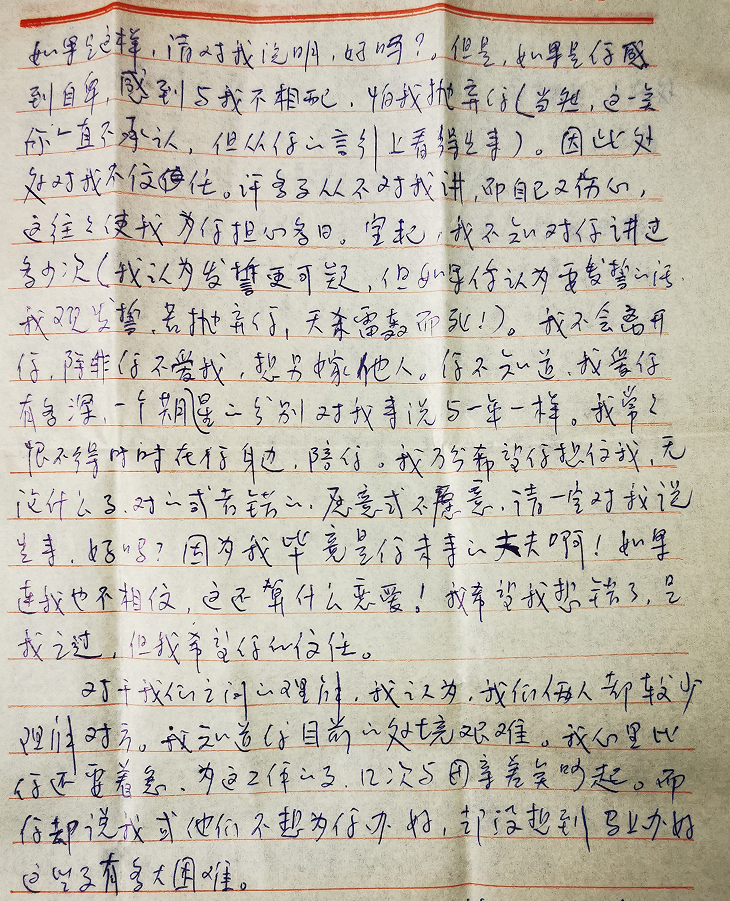 如果是这样，请对我说明，好吗？但是，如果是你感
到自卑，感到与我不相配，怕我抛弃你（当然，这一点
你一直不承认，但从你的言行上看得出来）。因此处
处对我不信任。许多事从不对我讲，而自己又伤心，
这往往使我为你担心多日。宝艳，我不知对你讲过
多少次（我认为发誓更可疑，但如果你认为要发誓的话，
我现发誓，若抛弃你，天杀雷轰而死！）。我不会离开
你，除非你不爱我，想另嫁他人。你不知道，我爱你
有多深，一个期星的分别对我来说与一年一样。我常常
恨不得时时在你身边，陪你。我万分希望你相信我，无
论什么事，对的或者错的，愿意或不愿意，请一定对我说
出来，好吗？因为我毕竟是你未来的丈夫啊！如果
连我也不相信，这还算什么恋爱！我希望我想错了，是
我之过，但我希望你的信任。
对于我们之间的理解，我认为，我们俩人都较少
理解对方。我知道你目前的处境艰难。我们里比
你还要着急，为这工作的事，几次与母亲差点吵起。而
你却说我或他们不想为你办好，却没想到马上办好
这些事有多大困难。